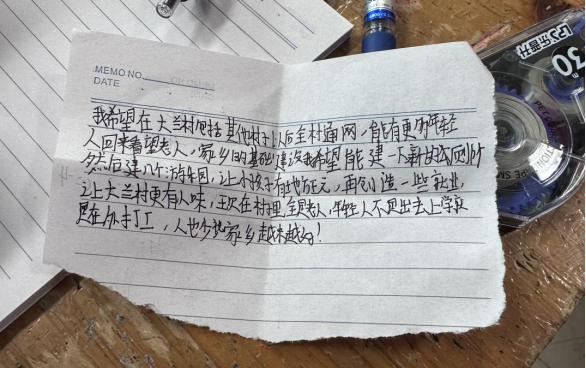 MEMO NO.
DATE
我希望在大兰村包括其他村子以后全村通网，能有更多年轻
人回来看望老人，家乡的基础建设我希望能建一下新的厕所
然后建几个游乐园，让小孩子有地方玩，再创造一些就业，
让大兰村更有人味，现在村子里全是老人，年轻人不是出去上学就
是在外打工，人也少 家乡越来越好！
30